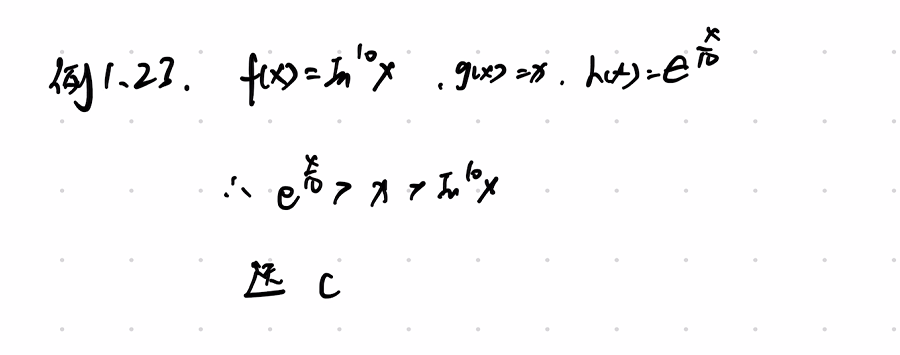 例1.23. f(x)=ln¹⁰x . g(x)=x. h(x)=e^{x/10}
∴ e^{x/10} > x > ln¹⁰x
选 C